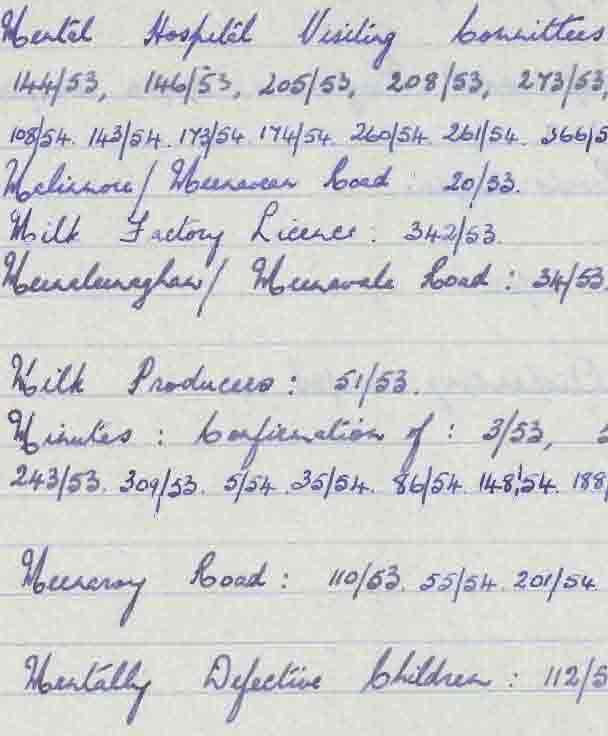 Mental Hospital Visiting Committees
144/53, 146/53, 205/53, 208/53, 273/53,
108/54. 143/54. 173/54. 174/54. 260/54. 261/54. 366/5
Road: 20/53.
Milk Factory Licence: 342/53.
Road: 34/53.
Milk Producers: 51/53.
Minutes: Confirmation of: 3/53,
243/53. 309/53. 5/54. 35/54. 86/54. 148/54. 188/
Meenacroy Road: 110/53. 55/54. 201/54.
Mentally Defective Children: 112/5